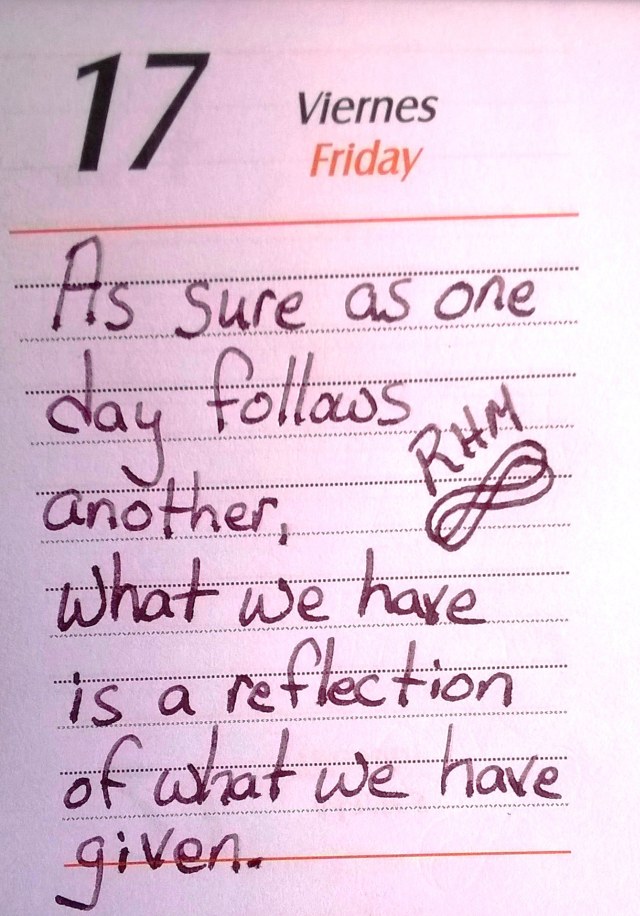 17
Viernes
Friday
As sure as one
day follows
RHM
another,
what we have
is a reflection
of what we have
given.